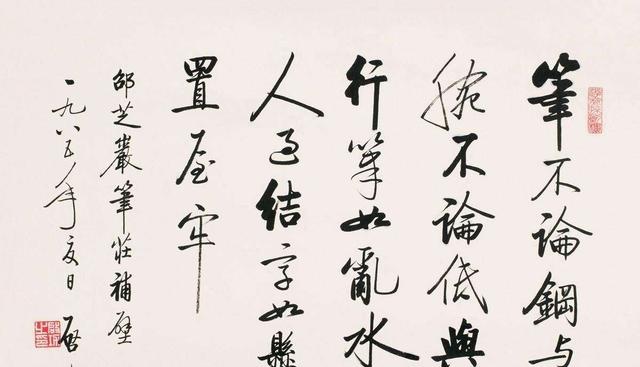 筆不論鋼与
腕不論低與
行筆如亂水
人過結字如懸
置屋牢
邵芝巖筆莊補壁
一九八五年夏日 啓